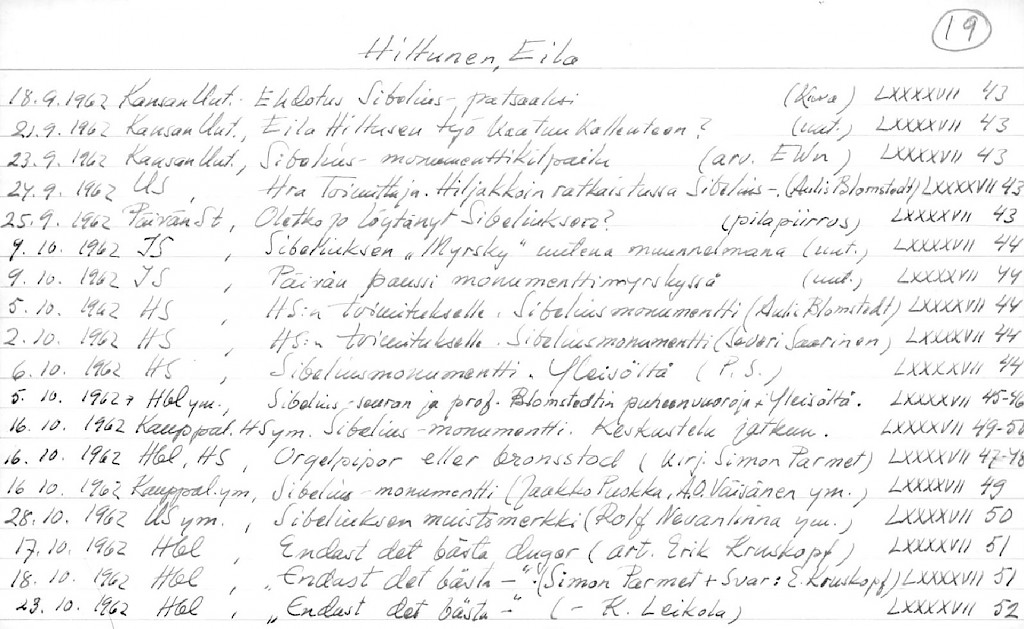 19
Hiltunen, Eila
18.9.1962 Kansan Uut. Ehdotus Sibelius-patsaaksi (kuva) LXXXXVII 43
21.9.1962 Kansan Uut., Eila Hiltusen työ Vaatuu Kallenteen? (uut.) LXXXXVII 43
23.9.1962 Kansan Uut., Sibelius-monumenttikilpailu (arv. EWn) LXXXXVII 43
24.9.1962 US, Hra Toimittaja. Hiljakkoin ratkaistussa Sibelius-. (Aulis Blomstedt) LXXXXVII 43
25.9.1962 Päivän St, Oletko jo löytänyt Sibeliuksen? (pilapiirros) LXXXXVII 43
9.10.1962 IS, Sibeliuksen „Myrsky" uutena muunnelmana (uut.) LXXXXVII 44
9.10.1962 IS Päivän paussi monumenttimyrskyssä (uut.) LXXXXVII 44
5.10.1962 HS, HS:n toimitukselle. Sibeliusmonumentti (Aulis Blomstedt) LXXXXVII 44
2.10.1962 HS, HS:n toimitukselle. Sibeliusmonumentti (Severi Saarinen) LXXXXVII 44
6.10.1962 HS, Sibeliusmonumentti. Yleisöltä (P.S.) LXXXXVII 44
5.10.1962 Hbl ym., Sibelius-seuran ja prof. Blomstedtin puheenvuoroja + Yleisöltä. LXXXXVII 45-46
16.10.1962 Kauppal. HS ym. Sibelius-monumentti. Keskustelu jatkuu. LXXXXVII 49-50
16.10.1962 Hbl, HS, Orgelpipor eller bronsstod (kirj. Simon Parmet) LXXXXVII 47-48
16.10.1962 Kauppal. ym, Sibelius-monumentti (Jaakko Puokka, A.O. Väisänen ym.) LXXXXVII 49
28.10.1962 US ym., Sibeliuksen muistomerkki (Rolf Nevanlinna ym.) LXXXXVII 50
17.10.1962 Hbl, Endast det bästa duger (art. Erik Kruskopf) LXXXXVII 51
18.10.1962 Hbl, „Endast det bästa -" (Simon Parmet + Svar: E. Kruskopf) LXXXXVII 51
23.10.1962 Hbl, „Endast det bästa -" (- K. Leikola) LXXXXVII 52